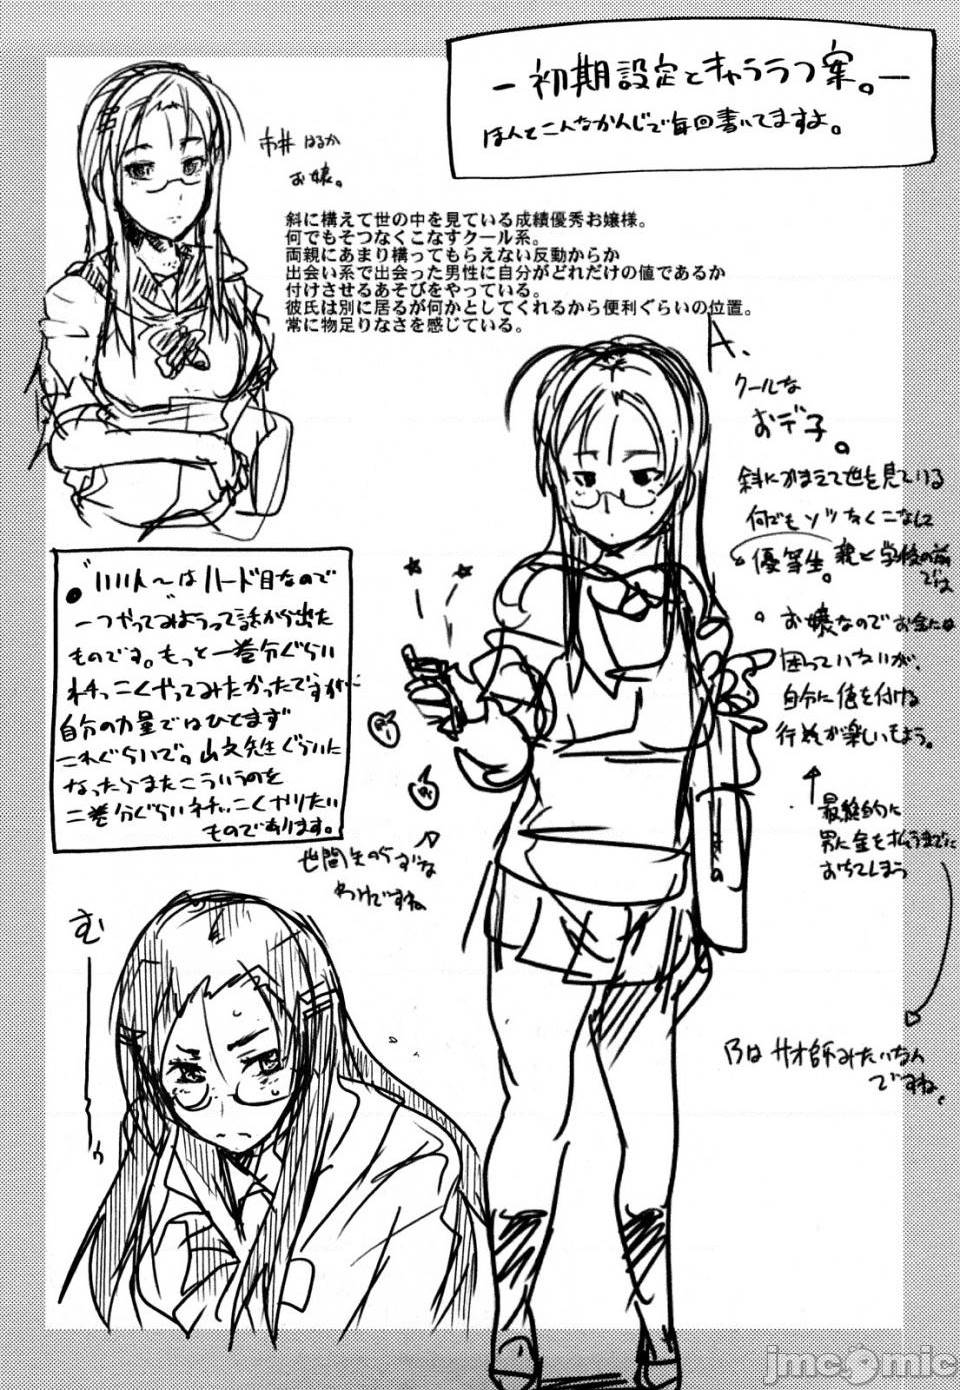 ー初期設定とキャララフ案。ー
ほんとこんなかんじで毎回書いてますよ。
市井 はるか
お嬢。
斜に構えて世の中を見ている成績優秀お嬢様。
何でもそつなくこなすクール系。
両親にあまり構ってもらえない反動からか
出会い系で出会った男性に自分がどれだけの値であるか
付けさせるあそびをやっている。
彼氏は別に居るが何かとしてくれるから便利ぐらいの位置。
常に物足りなさを感じている。
A、
クールな
おデ子。
斜にかまえて世を見ている
何でもソツなくこなして
優等生。親と学校の前
では
。お嬢なのでお金には
困っていないが、
自分に値を付ける
行為が楽しいもよう。
↑
最終的に
男に金を払うまでに
おちてしまう
Bは サオ師みたいなもん
ですね。
は ハード目なので
一つやってみようって話から出た
ものです。もっと一巻分ぐらい
ネチっこくやってみたかったですが…
自分の力量ではひとまず
これぐらいで。山文先生ぐらいに
なったらまたこういうのを
二巻分ぐらいネチっこくヤりたい
ものであります。
世間知らずな
わけですね
む
jmcomic